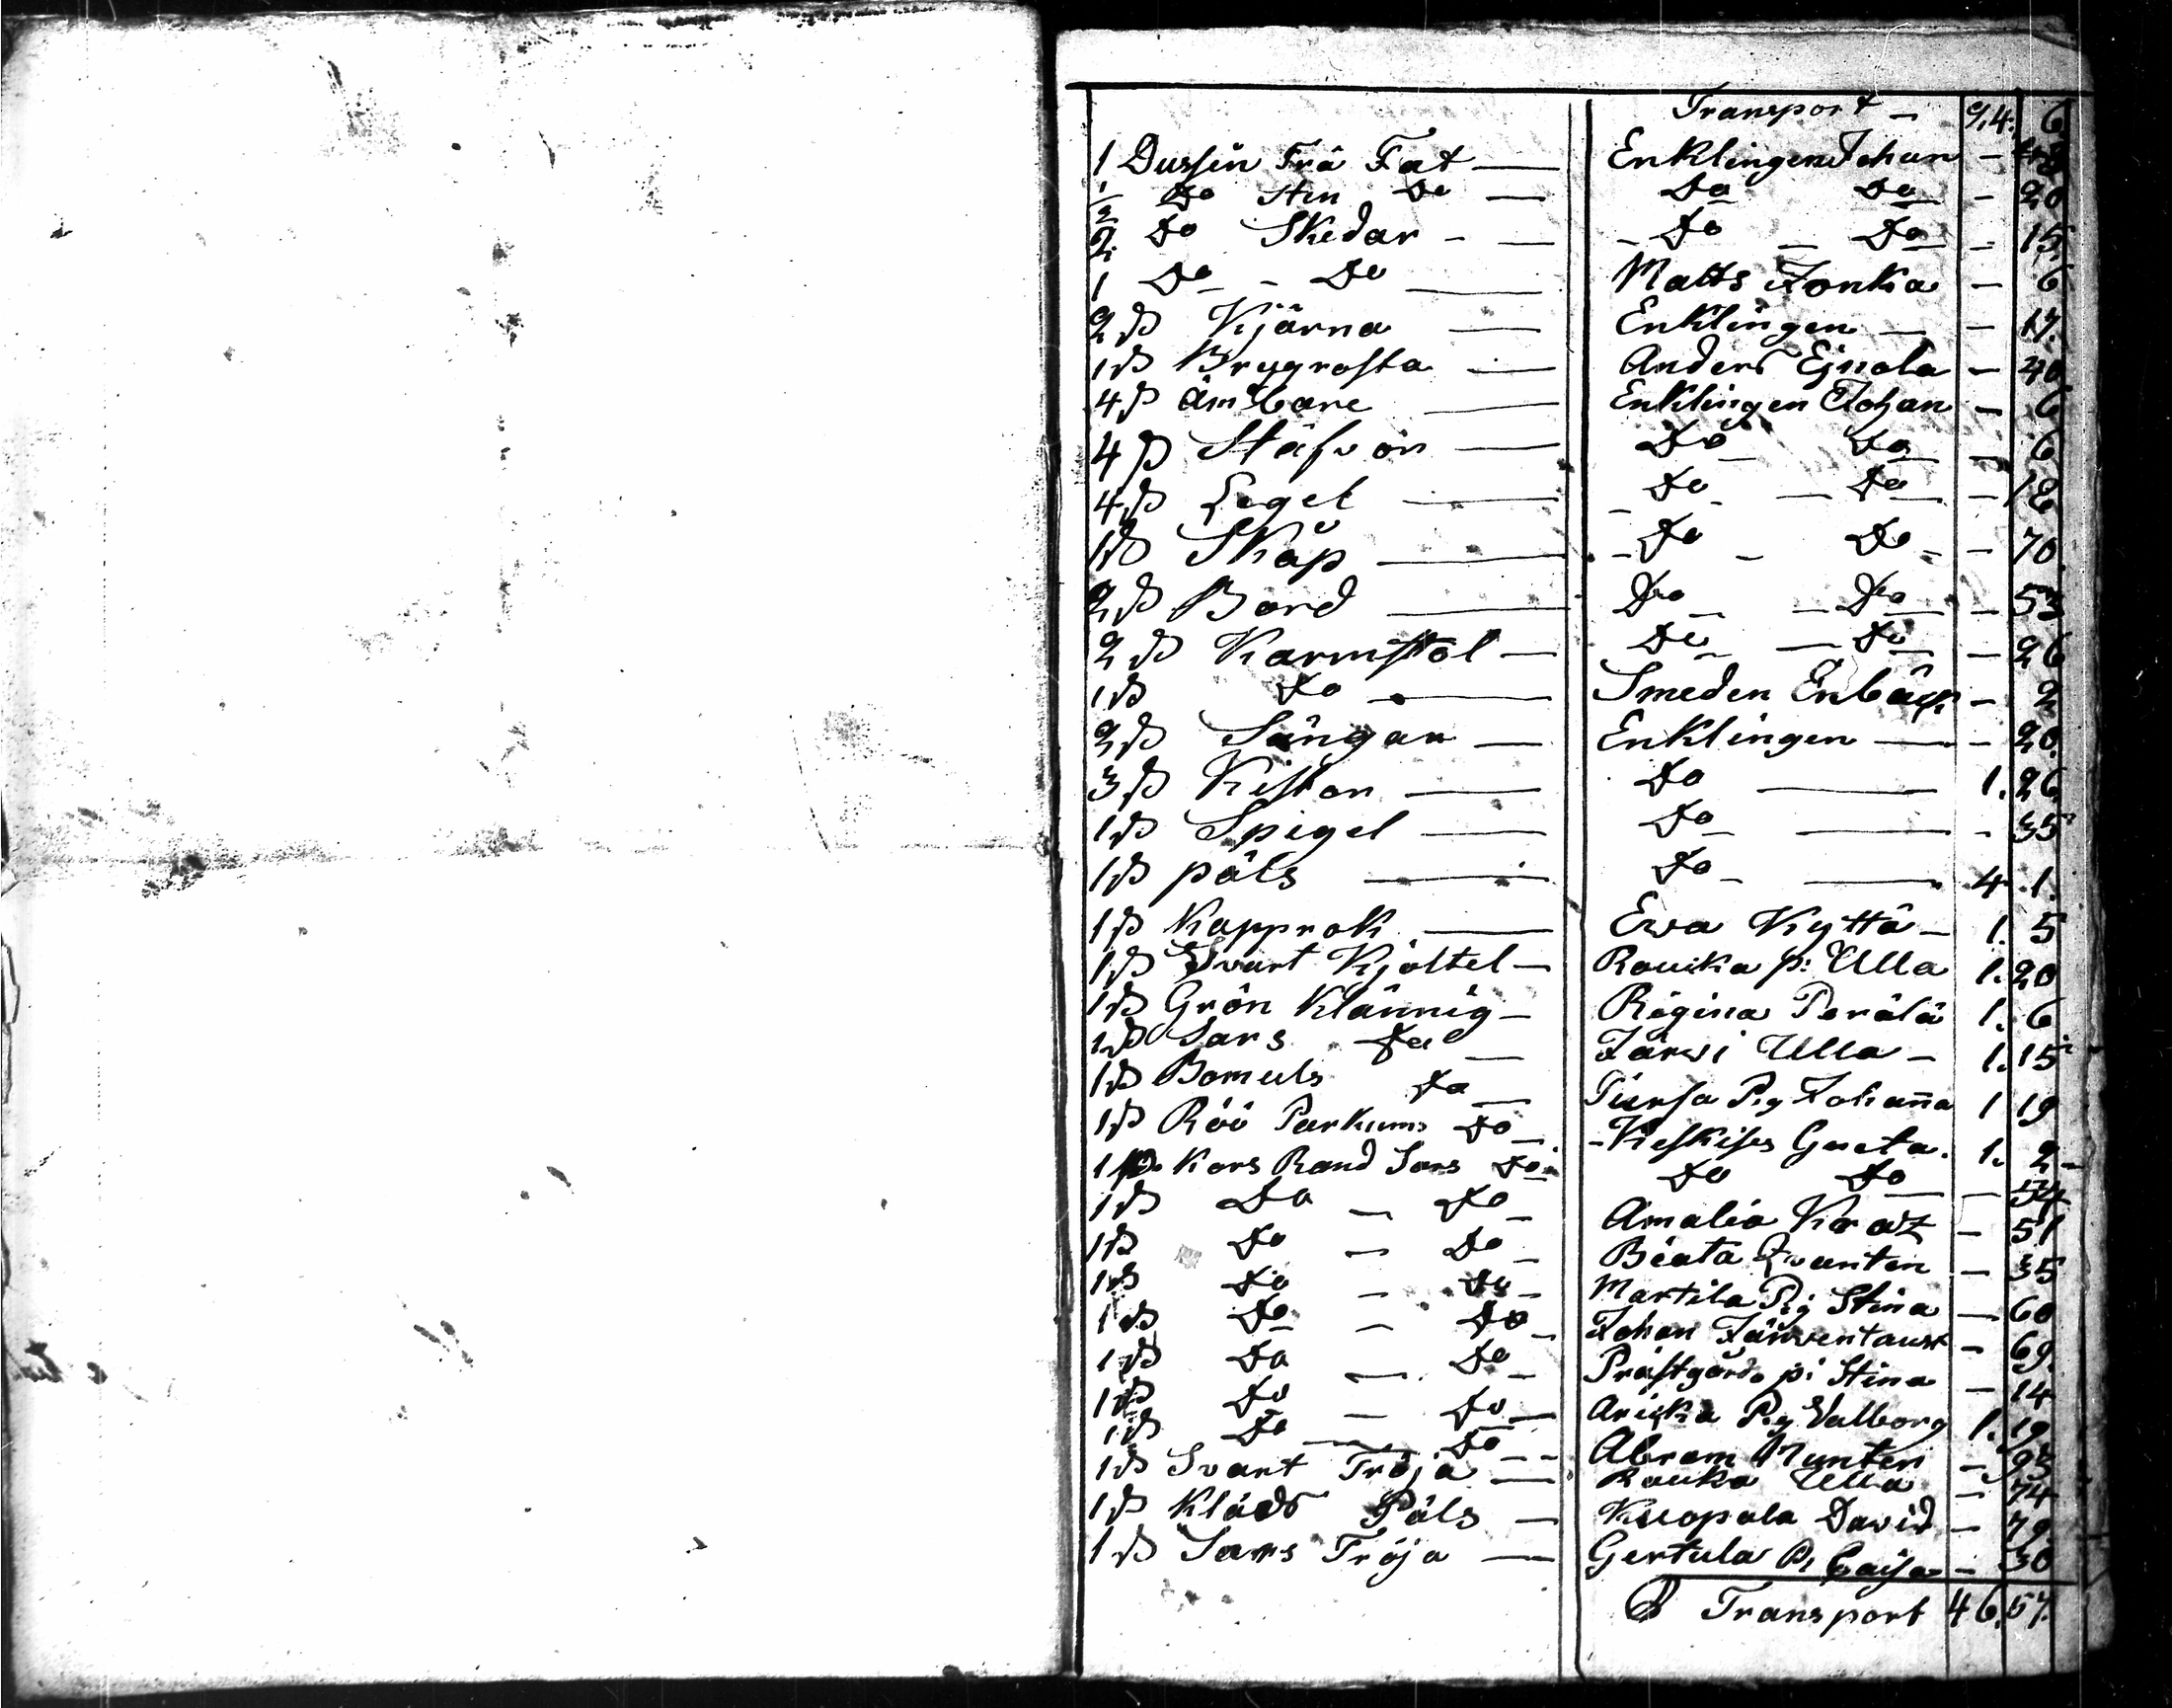 Transport — 6
1 Dussin Trä Fat — Enklingen Johan —
1/2 Do Sten Do — Do Do — 20
2 Do Skedar — Do — Do — 15
1 Do - Do — Matts Jonka — 6
2 ß Kjärna — Enklingen — 17
1 ß Brygrosta — Anders Ejnola — 40
4 ß Ämbare — Enklingen Johan — 6
4 ß Stäfvor — Do Do — 6
4 ß Legel — Do — Do — 18
1 ß Skåp — Do — Do — 70
2 ß Bord — Do — Do — 53
2 ß Karmstol — Do — Do — 26
1 ß Do — Smeden Enbäck — 2
2 ß Sängar — Enklingen — 20
3 ß Kistor — Do — 1. 26
1 ß Spigel — Do — 35
1 ß päls — Do — 4. 1
1 ß Kapprok — Ewa Kyttä — 1. 5
1 ß Svart Kjoltel — Rouika p: Ulla 1. 20
1 ß Grön Klännig — Regina Perälä 1. 6
1 ß Sars Do — Järwi Ulla — 1. 15
1 ß Bomuls Do — Pig Johanna 1 19
1 ß Röö Parkums Do — Keskises Greta. 1. 2
1 ß Kors Rand Sars Do — Do Do — 54
1 ß Do — Do — Amalia — 51
1 ß Do — Do — Beata Qvanten — 35
1 ß Do — Do — Martila Pig Stina — 60
1 ß Do — Do — Johan — 69
1 ß Do — Do — Prästgårds pi Stina — 14
1 ß Do — Do — Pig Valborg 1. 19
1 ß Do — Do — Abram Munter — 93
1 ß Svart Tröja — Rouka Ulla — 74
1 ß Kläds Päls — Kuopala David — 79
1 ß Sars Tröja — Gertula P. Caisa — 30
Transport 46. 57.